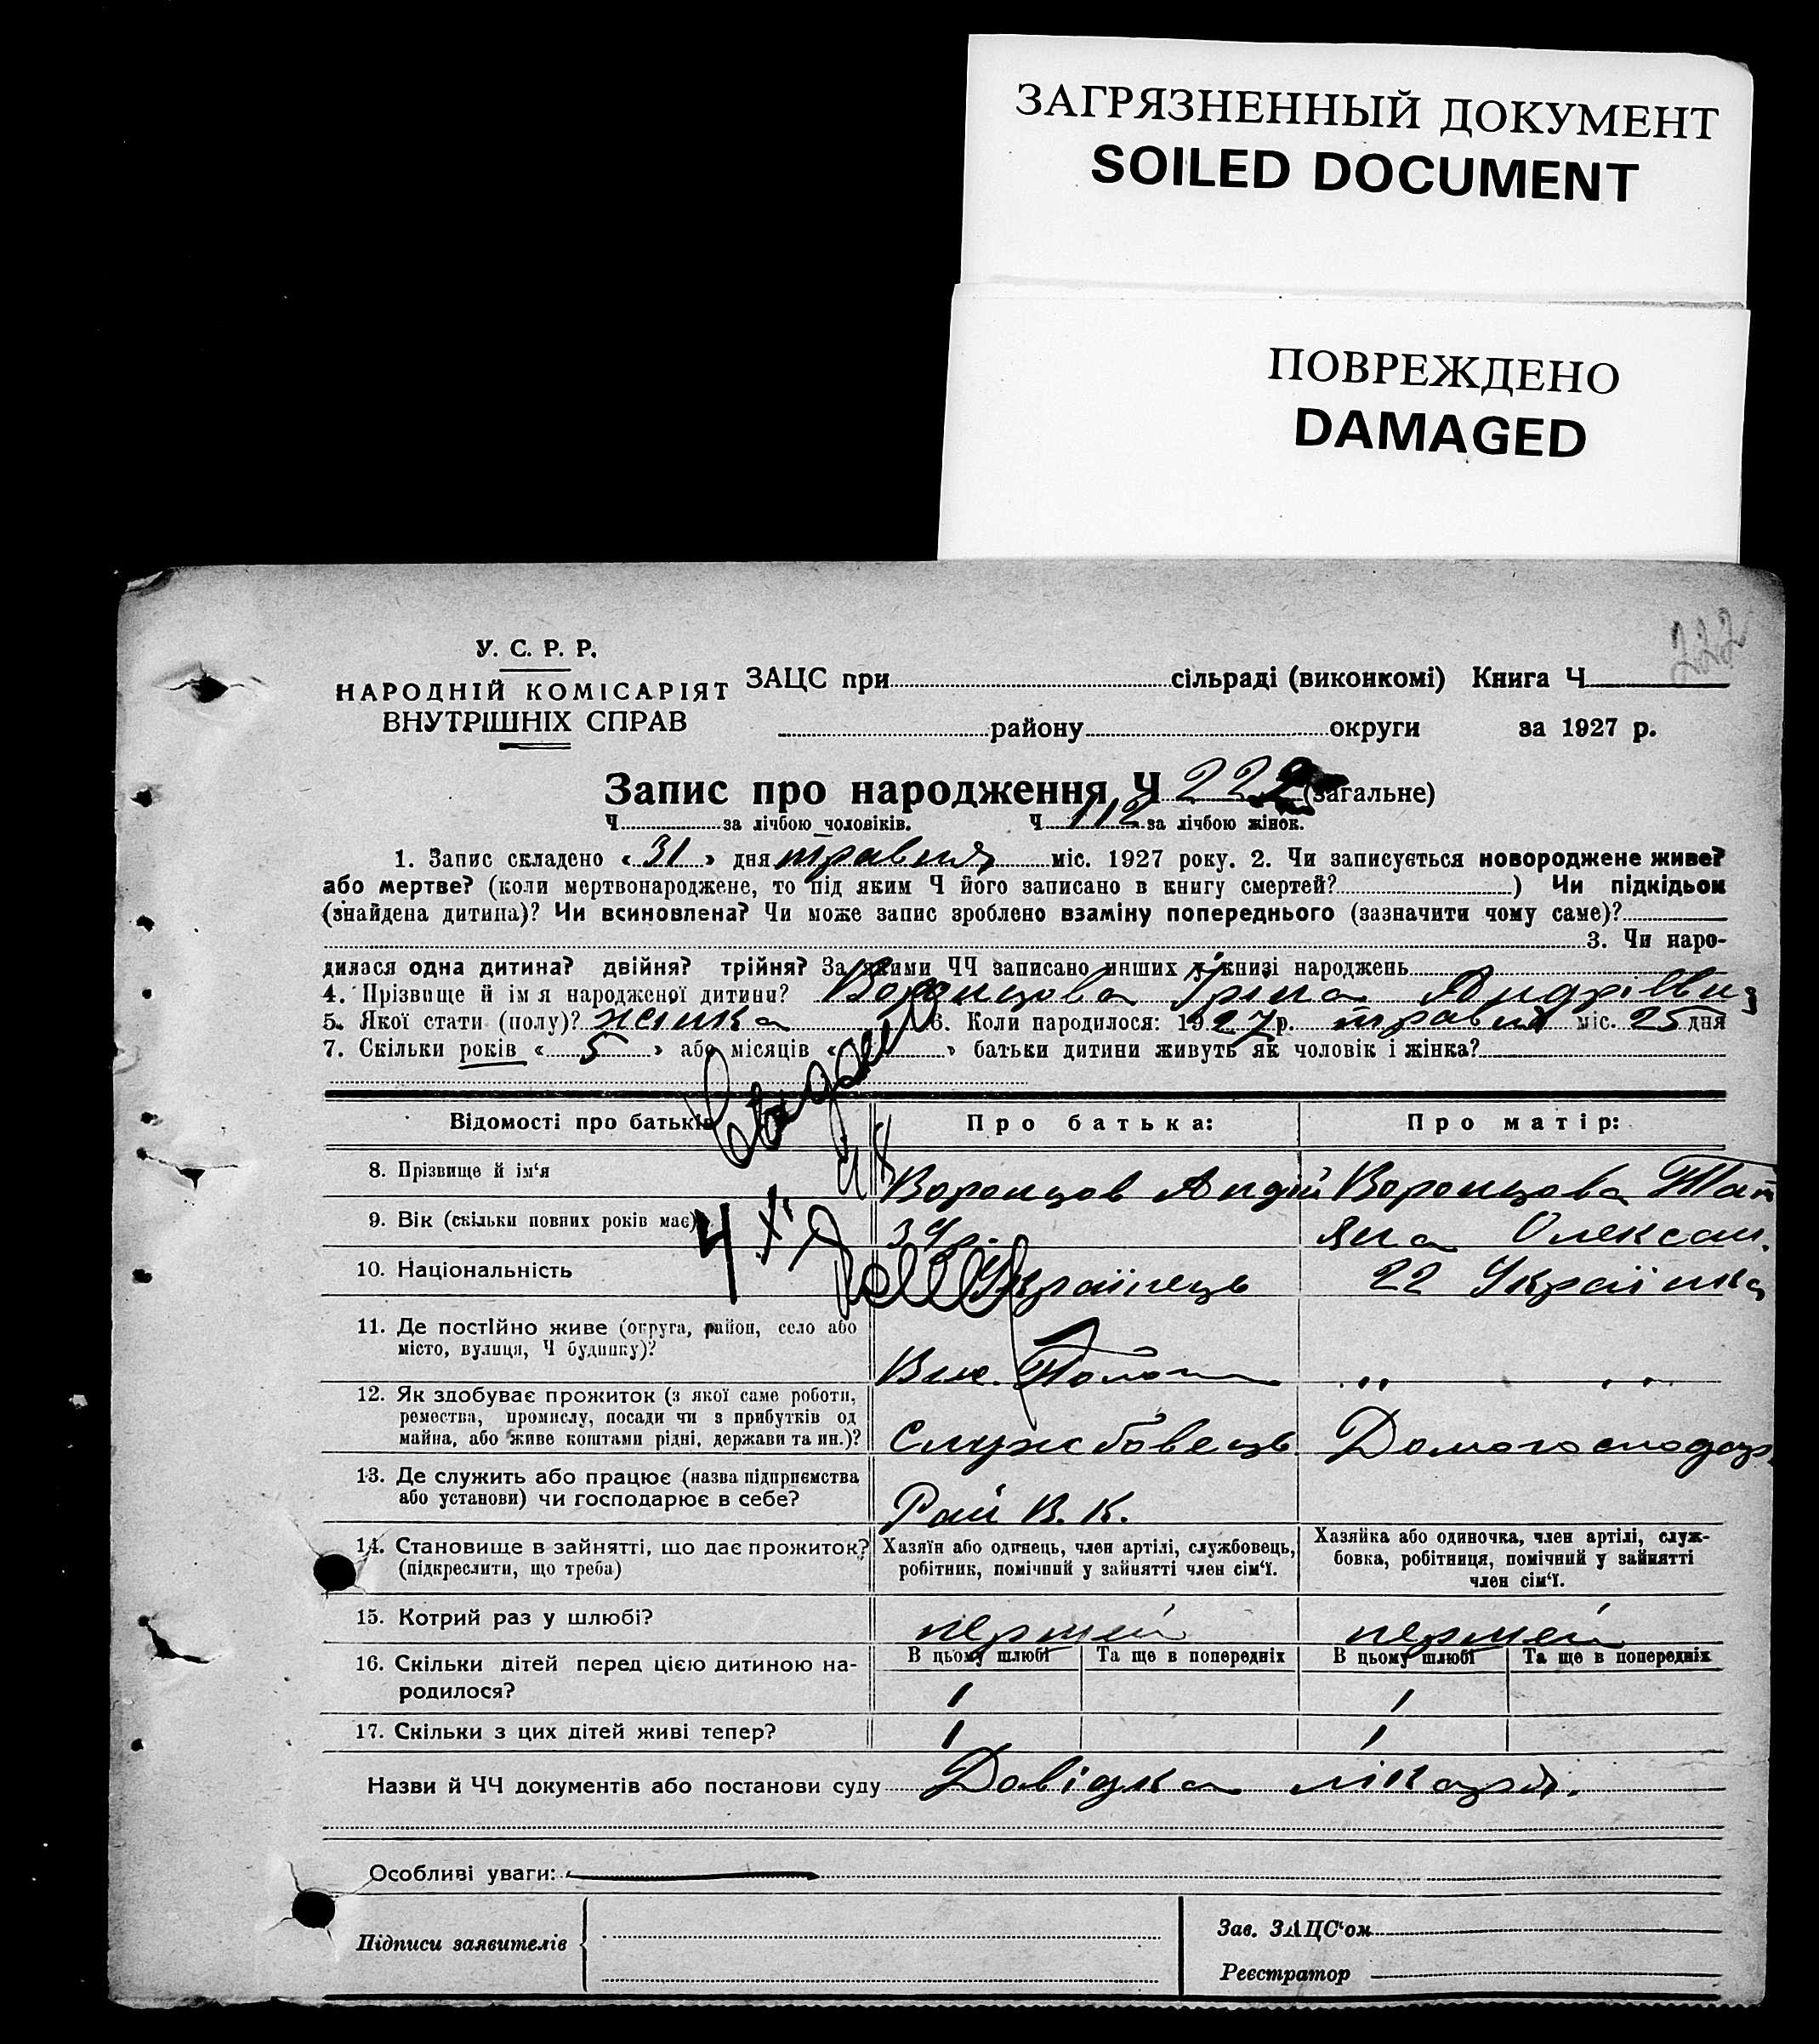 ЗАГРЯЗНЕННЫЙ ДОКУМЕНТ
SOILED DOCUMENT
ПОВРЕЖДЕНО
DAMAGED
222
У. С. Р. Р.
НАРОДНІЙ КОМІСАРІЯТ
ВНУТРІШНІХ СПРАВ
ЗАЦС при сільраді (виконкомі) Книга Ч
району округи за 1927 р.
Запис про народження Ч 222 (загальне)
Ч за лічбою чоловіків. Ч 112 за лічбою жінок.
1. Запис складено « 31 » дня травня міс. 1927 року. 2. Чи записується новороджене живе?
або мертве? (коли мертвонароджене, то під яким Ч його записано в книгу смертей? ) Чи підкідьок
(знайдена дитина)? Чи всиновлена? Чи може запис зроблено взаміну попереднього (зазначити чому саме)?
3. Чи наро-
дилася одна дитина? двійня? трійня? За якими ЧЧ записано инших у книзі народжень
4. Прізвище й ім я народженої дитини? Воронцова Іріна Андріївна
5. Якої стати (полу)? жінка 6. Коли народилося: 1927 р. травня міс. 25 дня
7. Скільки років « 5 » або місяців « » батьки дитини живуть як чоловік і жінка?
Відомості про батьків Про батька: Про матір:
8. Прізвище й ім‘я Воронцов Андрій Воронцова Тат
9. Вік (скільки повних років має) 34 р. яна Олексан.
10. Національність Українець 22 Українка
11. Де постійно живе (округа, район, село або
місто, вулиця, Ч будинку)?
12. Як здобуває прожиток (з якої саме роботи,
ремества, промислу, посади чи з прибутків од
майна, або живе коштами рідні, держави та ин.)? Службовець Домогосподар.
13. Де служить або працює (назва підприємства
або установи) чи господарює в себе? Рай В. К.
14. Становище в зайнятті, що дає прожиток?
(підкреслити, що треба)
Хазяїн або одинець, член артілі, службовець,
робітник, помічний у зайнятті член сім‘ї.
Хазяйка або одиночка, член артілі, служ-
бовка, робітниця, помічний у зайнятті
член сім‘ї.
15. Котрий раз у шлюбі? перший перший
В цьому шлюбі Та ще в попередніх В цьому шлюбі Та ще в попередніх
16. Скільки дітей перед цією дитиною на-
родилося? 1 1
17. Скільки з цих дітей живі тепер? 1 1
Назви й ЧЧ документів або постанови суду Довідка лікаря.
Особливі уваги:
Підписи заявителів
Зав. ЗАЦС‘ом
Реєстратор